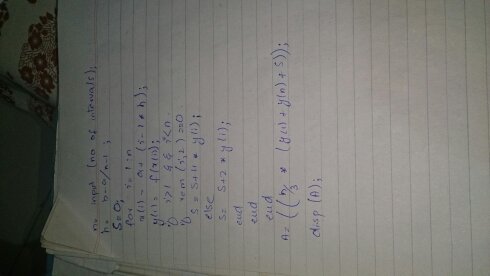 n= input (no of intervals);
h= b-a/n-1 ;
S=0;
for i=1:n
x(i) = a+(i-1*h);
y(i) = f(x(i));
if i>1 && i<n
if rem(i,2)==0
S = S+4* y(i);
else
S= S+2* y(i);
end
end
end
A= ((h/3 * (y(1)+y(n)+S));
disp (A);